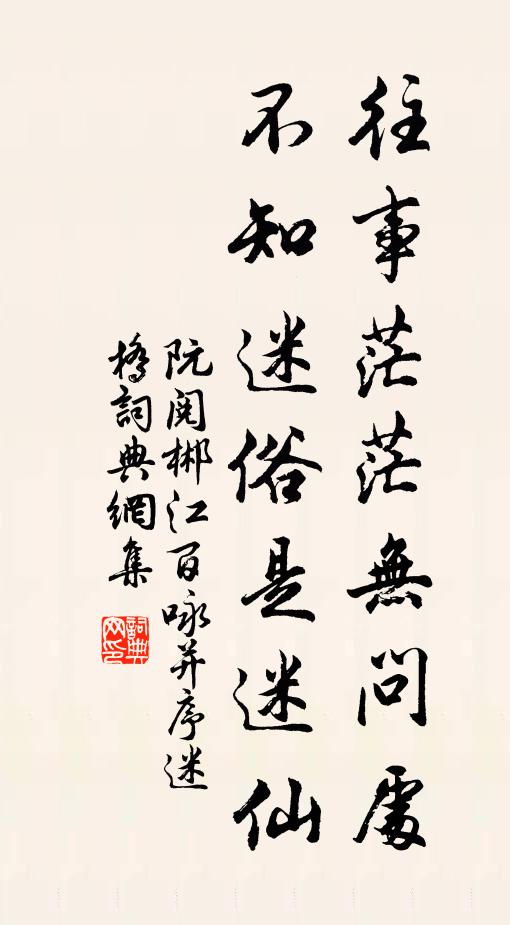 往事茫茫無問處
不知迷俗是迷仙
阮閱郴江百咏并序迷
橋詞典網集
詞典網印